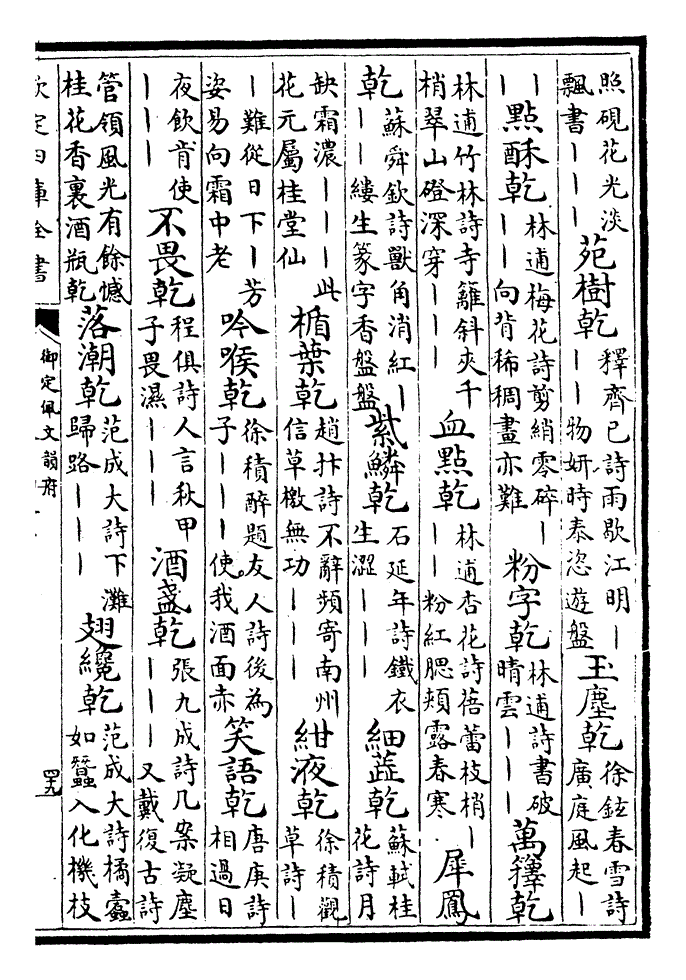 照硯花光淡飄書丨丨丨苑樹乾釋齊已詩雨歇江明丨丨丨物妍時泰恣遊盤玉塵乾徐鉉春雪詩廣庭風起丨
丨丨點酥乾林逋梅花詩剪綃零碎丨丨丨向背稀稠畫亦難粉字乾林逋詩書破晴雲丨丨丨萬籜乾
林逋竹林詩寺籬斜夾千梢翠山磴深穿丨丨丨血點乾林逋杏花詩蓓蕾枝梢丨丨丨粉紅腮頰露春寒犀鳳
乾蘇舜欽詩獸角消紅丨丨丨縷生篆字香盤盤紫鱗乾石延年詩鐵衣生澀丨丨丨細蕋乾蘇軾桂花詩月
缺霜濃丨丨丨此花元屬桂堂仙楯葉乾趙抃詩不辭頻寄南州信草檄無功丨丨丨紺液乾徐積觀草詩丨
丨難從日下丨芳姿易向霜中老吟喉乾徐積醉題友人詩後為子丨丨丨使我酒面赤笑語乾唐庚詩相過日
夜飲肯使丨丨丨不畏乾程俱詩人言秋甲子畏濕丨丨丨酒盞乾張九成詩几案凝塵丨丨丨又戴復古詩
管領風光有餘憾桂花香裏酒瓶乾落潮乾范成大詩下灘歸路丨丨丨翅纔乾范成大詩橘蠹如蠶入化機枝
欽定四庫全書
御定佩文韻府
四九